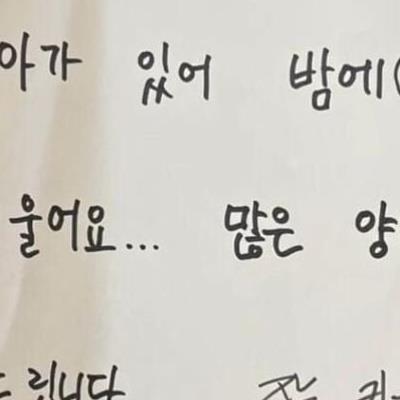 아가 있어 밤에(
울어요... 많은 양
드립니다 잘 키